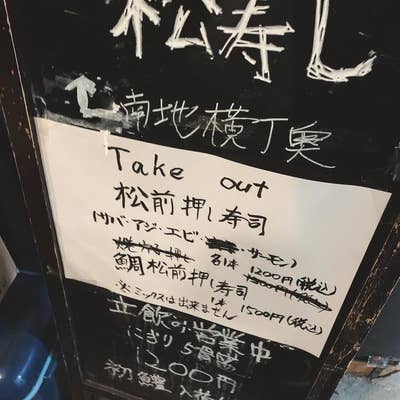 松寿し
南地横丁奥
Take out
松前押し寿司
(サバ・アジ・エビ・サーモン)
各1本 1200円(税込)
鯛松前押し寿司
1本 1500円(税込)
※ミックスは出来ません
立飲み営業中
にぎり5貫
1200円
初鰹 入荷